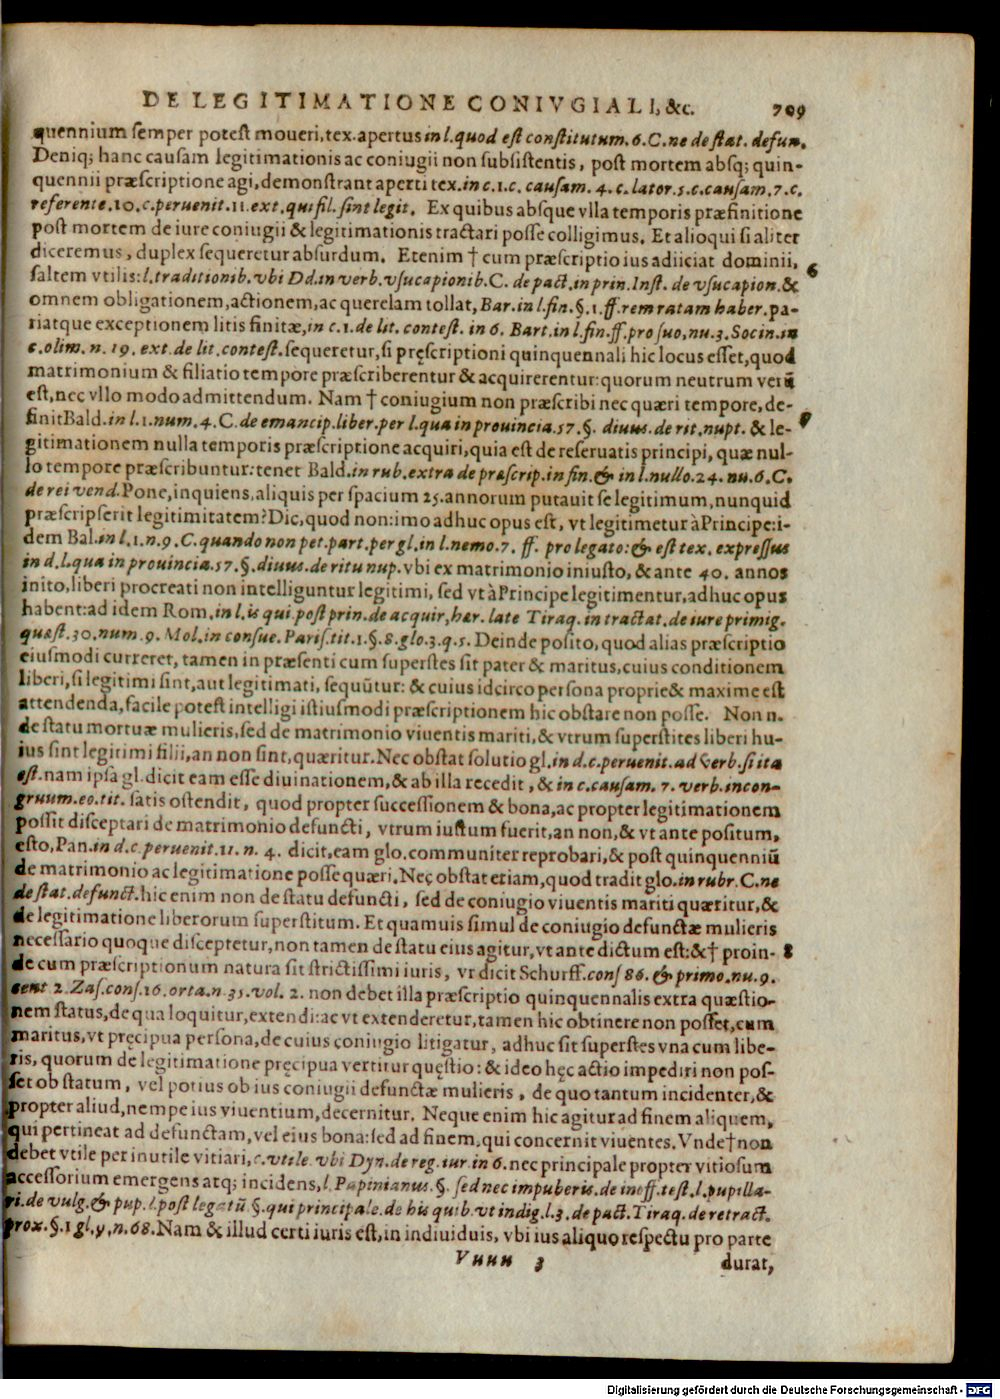 DE LEGITIMATIONE CONIVGIALI, &c. 709
quennium semper potest moueri, tex. apertus in l. quod est constitutum. 6. C. ne de stat. defun.
Deniq; hanc causam legitimationis ac coniugii non subsistentis, post mortem absq; quin-
quennii præscriptione agi, demonstrant aperti tex. in c. 1. c. causam. 4. c. lator. 5. c. causam. 7. c.
referente. 10. c. peruenit. 11. ext. qui fil. sint legit. Ex quibus absque vlla temporis præfinitione
post mortem de iure coniugii & legitimationis tractari posse colligimus. Et alioqui si aliter
diceremus, duplex sequeretur absurdum. Etenim † cum præscriptio ius adiiciat dominii, 6
saltem vtilis: l. traditionib. vbi Dd. in verb. vsucapionib. C. de pact. in prin. Inst. de vsucapion. &
omnem obligationem, actionem, ac querelam tollat, Bar. in l. fin. §. 1. ff. rem ratam haber. pa-
riatque exceptionem litis finitæ, in c. 1. de lit. contest. in 6. Bart. in l. fin. ff. pro suo, nu. 3. Socin. in
c. olim. n. 19. ext. de lit. contest. sequeretur, si pręscriptioni quinquennali hic locus esset, quod
matrimonium & filiatio tempore præscriberentur & acquirerentur: quorum neutrum verū
est, nec vllo modo admittendum. Nam † coniugium non præscribi nec quæri tempore, de- 7
finit Bald. in l. 1. num. 4. C. de emancip. liber. per l. qua in prouincia. 57. §. diuus. de rit. nupt. & le-
gitimationem nulla temporis præscriptione acquiri, quia est de reseruatis principi, quæ nul-
lo tempore præscribuntur: tenet Bald. in rub. extra de præscrip. in fin. & in l. nullo. 24. nu. 6. C.
de rei vend. Pone, inquiens, aliquis per spacium 25. annorum putauit se legitimum, nunquid
præscripserit legitimitatem? Dic, quod non: imo adhuc opus est, vt legitimetur à Principe: i-
dem Bal. in l. 1. n. 9. C. quando non pet. part. per gl. in l. nemo. 7. ff. pro legato: & est tex. expressus
in d. l. qua in prouincia. 57. §. diuus. de ritu nup. vbi ex matrimonio iniusto, & ante 40. annos
inito, liberi procreati non intelliguntur legitimi, sed vt à Principe legitimentur, adhuc opus
habent: ad idem Rom. in l. is qui post prin. de acquir, hær. late Tiraq. in tractat. de iure primig.
quæst. 30. num. 9. Mol. in consue. Paris. tit. 1. §. 8. glo. 3. q. 5. Deinde posito, quod alias præscriptio
eiusmodi curreret, tamen in præsenti cum superstes sit pater & maritus, cuius conditionem
liberi, si legitimi sint, aut legitimati, sequūtur: & cuius idcirco persona proprie & maxime est
attendenda, facile potest intelligi istiusmodi præscriptionem hic obstare non posse. Non n.
de statu mortuæ mulieris, sed de matrimonio viuentis mariti, & vtrum superstites liberi hu-
ius sint legitimi filii, an non sint, quæritur. Nec obstat solutio gl. in d. c. peruenit. ad verb. si ita
est. nam ipsa gl. dicit eam esse diuinationem, & ab illa recedit, & in c. causam. 7. verb. incon-
gruum. eo. tit. satis ostendit, quod propter successionem & bona, ac propter legitimationem
possit disceptari de matrimonio defuncti, vtrum iustum fuerit, an non, & vt ante positum,
esto, Pan. in d. c. peruenit. 11. n. 4. dicit, eam glo. communiter reprobari, & post quinquenniū
de matrimonio ac legitimatione posse quæri. Nec obstat etiam, quod tradit glo. in rubr. C. ne
de stat. defunct. hic enim non de statu defuncti, sed de coniugio viuentis mariti quæritur, &
de legitimatione liberorum superstitum. Et quamuis simul de coniugio defunctæ mulieris
necessario quoque disceptetur, non tamen de statu eius agitur, vt ante dictum est: & † proin- 8
de cum præscriptionum natura sit strictissimi iuris, vt dicit Schurff. cons 86. & primo. nu. 9.
cent 2. Zas. cons. 16. orta. n. 35. vol. 2. non debet illa præscriptio quinquennalis extra quæstio-
nem status, de qua loquitur, extendi: ac vt extenderetur, tamen hic obtinere non posset, cum
maritus, vt pręcipua persona, de cuius coniugio litigatur, adhuc sit superstes vna cum libe-
ris, quorum de legitimatione pręcipua vertitur quęstio: & ideo hęc actio impediri non pos-
set ob statum, vel potius ob ius coniugii defunctæ mulieris, de quo tantum incidenter, &
propter aliud, nempe ius viuentium, decernitur. Neque enim hic agitur ad finem aliquem,
qui pertineat ad defunctam, vel eius bona: sed ad finem, qui concernit viuentes. Vnde † non
debet vtile per inutile vitiari, c. vtile. vbi Dyn. de reg. iur. in 6. nec principale propter vitiosum
accessorium emergens atq; incidens, l. Papinianus. §. sed nec impuberis. de ineff. test. l. pupilla-
ri. de vulg. & pup. l. post legatū §. qui principale. de his quib. vt indig. l. 3. de pact. Tiraq. de retract.
prox. §. 1 gl. 9. n. 68. Nam & illud certi iuris est, in indiuiduis, vbi ius aliquo respectu pro parte
Vuuu 3 durat,
Digitalisierung gefördert durch die Deutsche Forschungsgemeinschaft - DFG